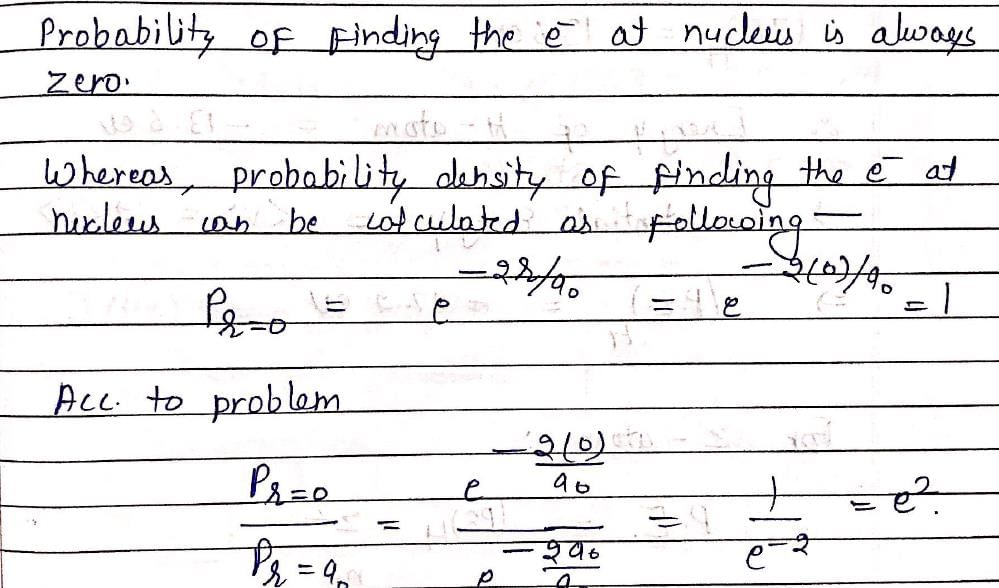 Probability of finding the e⁻ at nucleus is always
zero.
Whereas, probability density of finding the e⁻ at
nucleus can be calculated as following —
P_r=0 = e^-2r/a₀ = e^-2(0)/a₀ = 1
Acc. to problem
P_r=0 / P_r=a₀ = e^-2(0)/a₀ / e^-2a₀/a₀ = 1 / e^-2 = e².